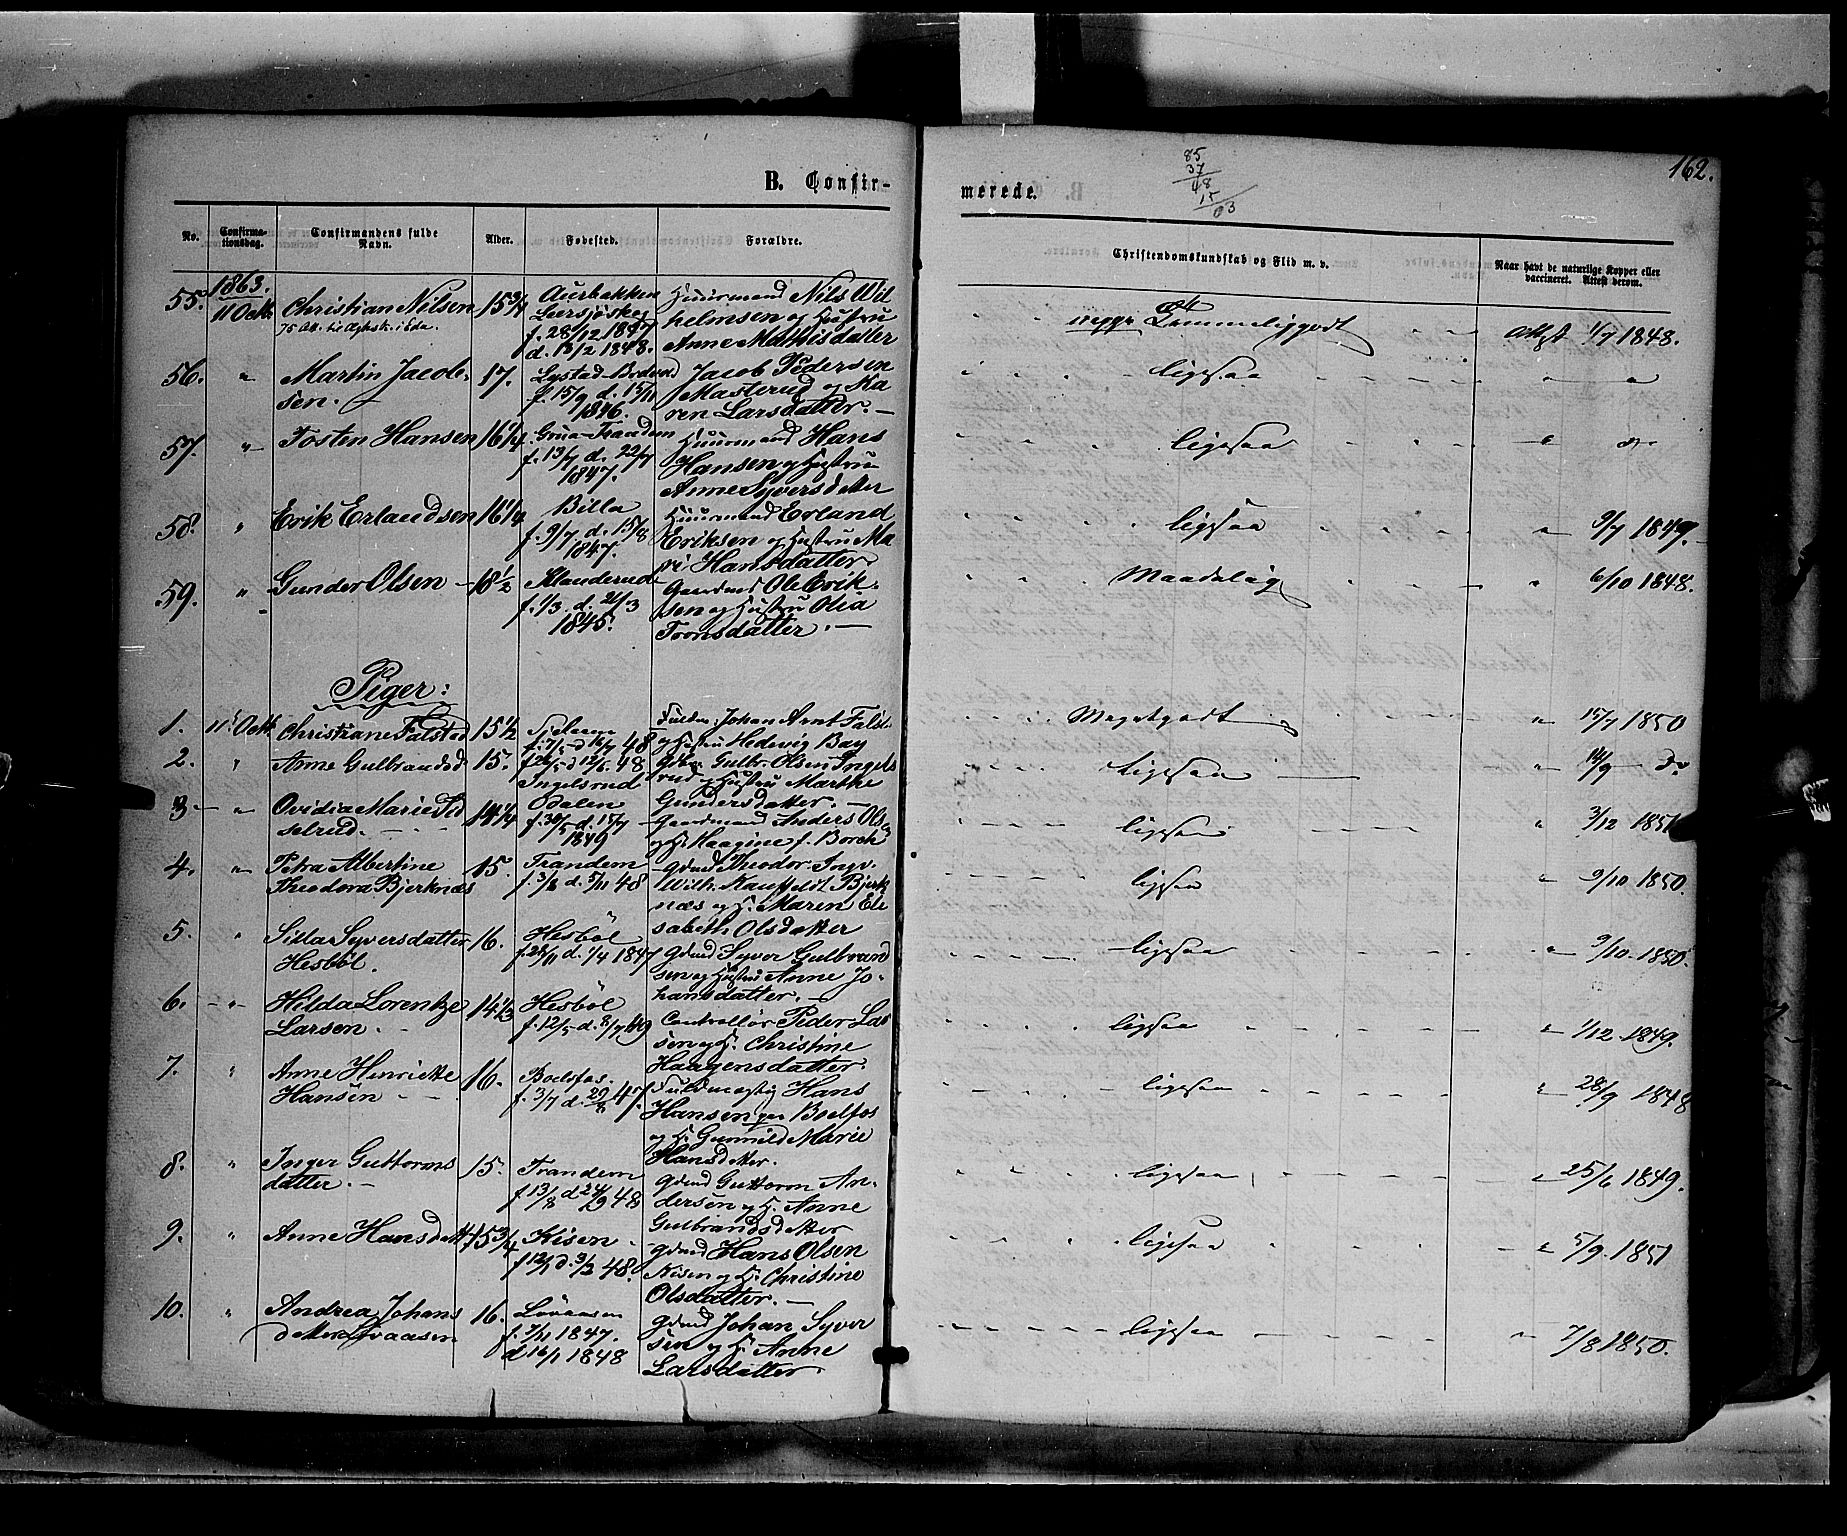 85
37
48
15
03
162.
B. Confir-
merede.
No.
Confirma-
tionsdag.
Confirmandens fulde
Navn.
Alder.
Fødested.
Forældre.
Christendomskundskab og Flid m. v.
Naar havt de naturlige Kopper eller
vaccineret. Attest derom.
1863.
55. 11 Octb. Christian Nilsen 15 3/4
Aurbakken
f. 28/12 1847
d. 13/2 1848.
Huusmand Nils Wil
helmsen og Hustru
Anne Mathisdatter
Temmelig godt
Attest 1/7 1848.
56. " Martin Jacob-
sen.
17.
f. 15/9 d. 15/11
1846.
Jacob Pedersen
Masterud og Ka
ren Larsdatter. —
ligesaa
57. " Tosten Hansen 16 1/4
Grua-Trandem
f. 13/7 d. 22/7
1847.
Huusmand Hans
Hansen og Hustru
Anne Syversdatter
ligesaa
58. " Erik Erlandsen 16 1/4
Billa
f. 9/7 d. 15/8
1847.
Huusmand Erland
Eriksen og Hustru Ma
ri Hansdatter
ligesaa
" 9/7 1849.
59. " Gunder Olsen — 18 1/2
Klanderud
f. 1/3 d. 21/3
1845.
Gaardmd Ole Erik-
sen og Hustru Olia
Tronsdatter. —
Maadelig
" 6/10 1848.
Piger:
1. 11 Octb. Christiane Falsted 15 1/2
f. 7/5 d 16/7 48
Johan Arnt Falst
og Hustru Hedevig Bay
Meget godt
" 15/7 1850
2. " Anne Gulbrandsd 15.
f 26/5 d 12/6. 48
Ingelsrud
Gdmd Gulbr. Olsen Ingels
rud og Hustru Marthe
Gundersdatter. —
ligesaa
14/9 — do
3 — " Ovidia Marie Sid
selrud. —
14 1/4
Odalen
f. 30/5 d. 15/7
1849
Gaardmand Anders Ols
og H. Haagine f. Borch
ligesaa
" 3/12 1851
4. " Petra Albertine
Theodora Bjerknæs
15.
Trandem
f. 3/8 d. 5/11 48
Gdmd Theodor Ingv.
Wilh. Bjerk
næs og H. Maren Eli
sabeth Olsdatter
ligesaa
" 9/10 1850.
5. " Silla Syversdatter
Hesbøl.
16.
Hesbøl
f. 26/11 d. 1/4 1847
Gdmd Syver Gulbrand
sen og Hustru Anne Jo-
hansdatter. —
ligesaa
" 9/10. 1850.
6. — " Hilda Lorentze
Larsen. —
14 1/3
Hesbøl
f. 12/5 d. 8/7 49
Controllør Peder Lar
sen og H. Christine
Haagensdatter.
ligesaa
" 1/12 1849.
7. " Anne Henriette
Hansen — —
16.
Boelsfos.
f. 3/7 d. 29/8 47.
Fuldmægtig Hans
Hansen paa Boelfos
og H. Gunnild Marie
Hansdatter.
ligesaa
" 28/9 1848
8. " Inger Guttorms
datter. —
15.
Trandem
f 13/8 d 24/9 48
Gdmd Guttorm An-
dersen og H. Anne
Gulbrandsdatter
ligesaa
" 25/6 1849.
9. " Anne Hansdatter 15 3/4
Kisen
f 12/1 d. 3/3 48.
Gdmd Hans Olsen
Kisen og H. Christine
Olsdatter. —
ligesaa
" 5/9. 1851
10. " Andrea Johans
datter Lövaasen
16.
Lövaasen
f. 7/11 1847.
d 16/1 1848
Gdmd Johan Syver
sen og H Anne
Larsdatter.
ligesaa
" 7/8 1850.